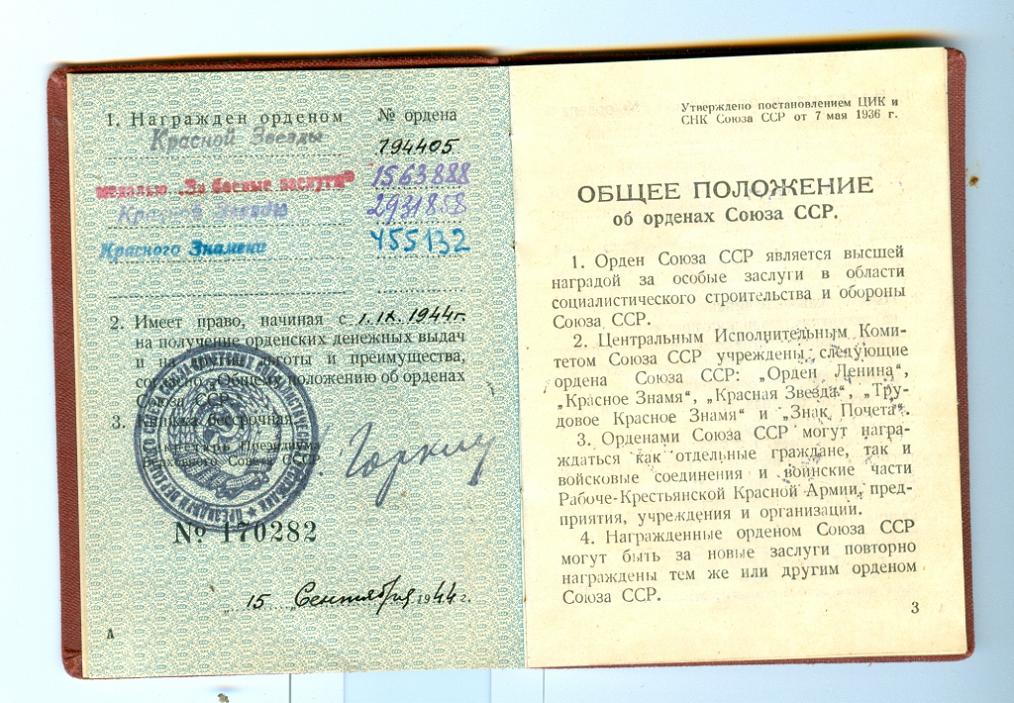 1. Награжден орденом
№ ордена
Красной Звезды
794405
медалью „За боевые заслуги“
1563888
Красной Звезды
2931858
Красного Знамени
455132
2. Имеет право, начиная с 1.IX.1944г.
на получение орденских денежных выдач
и на льготы и преимущества,
согласно „Общему положению об орденах
Союза ССР“
3. Книжка бессрочная.
Секретарь Президиума
Верховного Совета СССР
Горкин
№ 170282
„ 15 „ Сентября 1944 г.
А
Утверждено постановлением ЦИК и
СНК Союза ССР от 7 мая 1936 г.
ОБЩЕЕ ПОЛОЖЕНИЕ
об орденах Союза ССР.
1. Орден Союза ССР является высшей
наградой за особые заслуги в области
социалистического строительства и обороны
Союза ССР.
2. Центральным Исполнительным Коми-
тетом Союза ССР учреждены следующие
ордена Союза ССР: „Орден Ленина“,
„Красное Знамя“, „Красная Звезда“, „Тру-
довое Красное Знамя“ и „Знак Почета“.
3. Орденами Союза ССР могут награ-
ждаться как отдельные граждане, так и
войсковые соединения и воинские части
Рабоче-Крестьянской Красной Армии, пред-
приятия, учреждения и организации.
4. Награжденные орденом Союза ССР
могут быть за новые заслуги повторно
награждены тем же или другим орденом
Союза ССР.
3